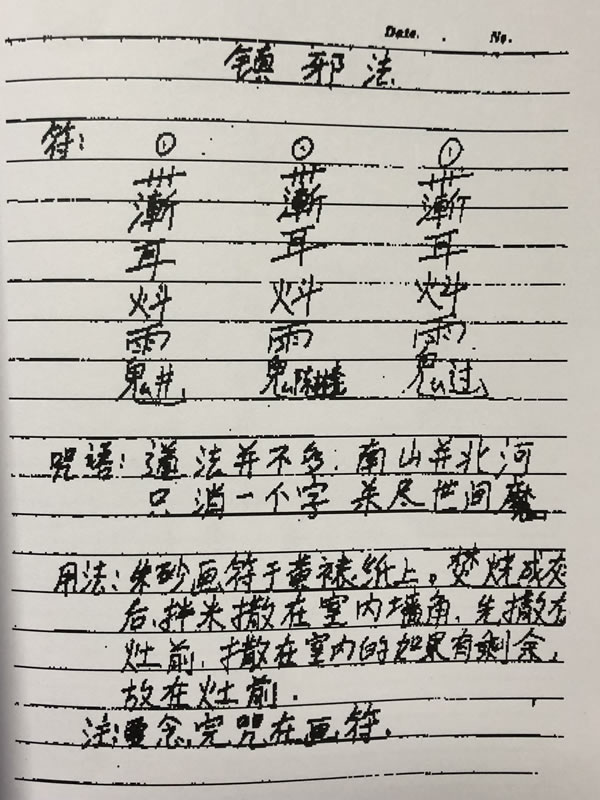 Date. . No.
镇邪法
符: ⊙ ⊙ ⊙
漸 漸 漸
耳 耳 耳
火斗 火斗 火斗
雨 雨 雨
鬼 鬼 鬼
咒语: 道法并不多. 南山并北河
只消一个字 杀尽世间魔
用法: 朱砂画符于黄裱纸上。焚烧成灰
后, 拌米撒在室内墙角. 先撒在
灶前. 撒在室内的如果有剩余,
放在灶前.
注: 要念完咒在画符.